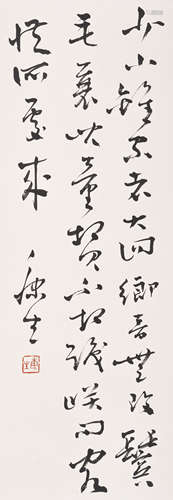 少小離家老大回鄉音無改鬢
毛衰兒童相見不相識咲問客
從何處來
康生